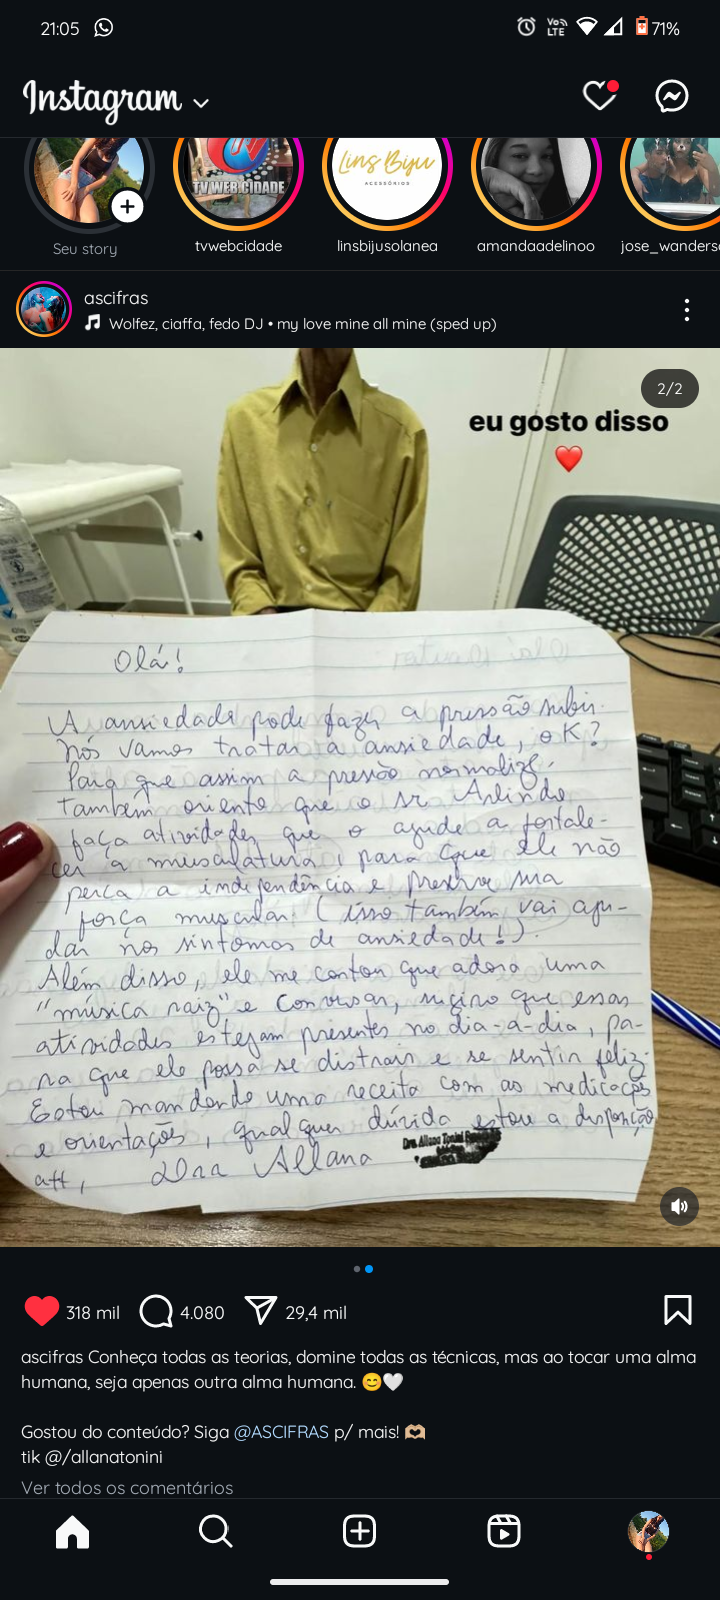 21:05
Vo LTE
71%
Instagram
TV WEB CIDADE
Lins Biju
ACESSÓRIOS
Seu story
tvwebcidade
linsbijusolanea
amandaadelinoo
jose_wanders
ascifras
Wolfez, ciaffa, fedo DJ • my love mine all mine (sped up)
2/2
eu gosto disso
Olá!
A ansiedade pode fazer a pressão subir.
Nós vamos tratar a ansiedade, ok?
Para que assim a pressão normalize,
também oriento que o sr Arlindo
faça atividades que o ajude a fortale-
cer a musculatura, para que ele não
perca a independência e preserve sua
força muscular! (isso também vai aju-
dar nos sintomas de ansiedade!).
Além disso, ele me contou que adora uma
"música raiz" e conversar, sugiro que essas
atividades estejam presentes no dia-a-dia, pa-
ra que ele possa se distrair e se sentir feliz.
Estou mandando uma receita com as medicações
e orientações, qualquer dúvida estou a disposição
att, Dra Allana
Dra. Allana Tonini
318 mil
4.080
29,4 mil
ascifras Conheça todas as teorias, domine todas as técnicas, mas ao tocar uma alma
humana, seja apenas outra alma humana. 😊🤍
Gostou do conteúdo? Siga @ASCIFRAS p/ mais! 🫶🏼
tik @/allanatonini
Ver todos os comentários